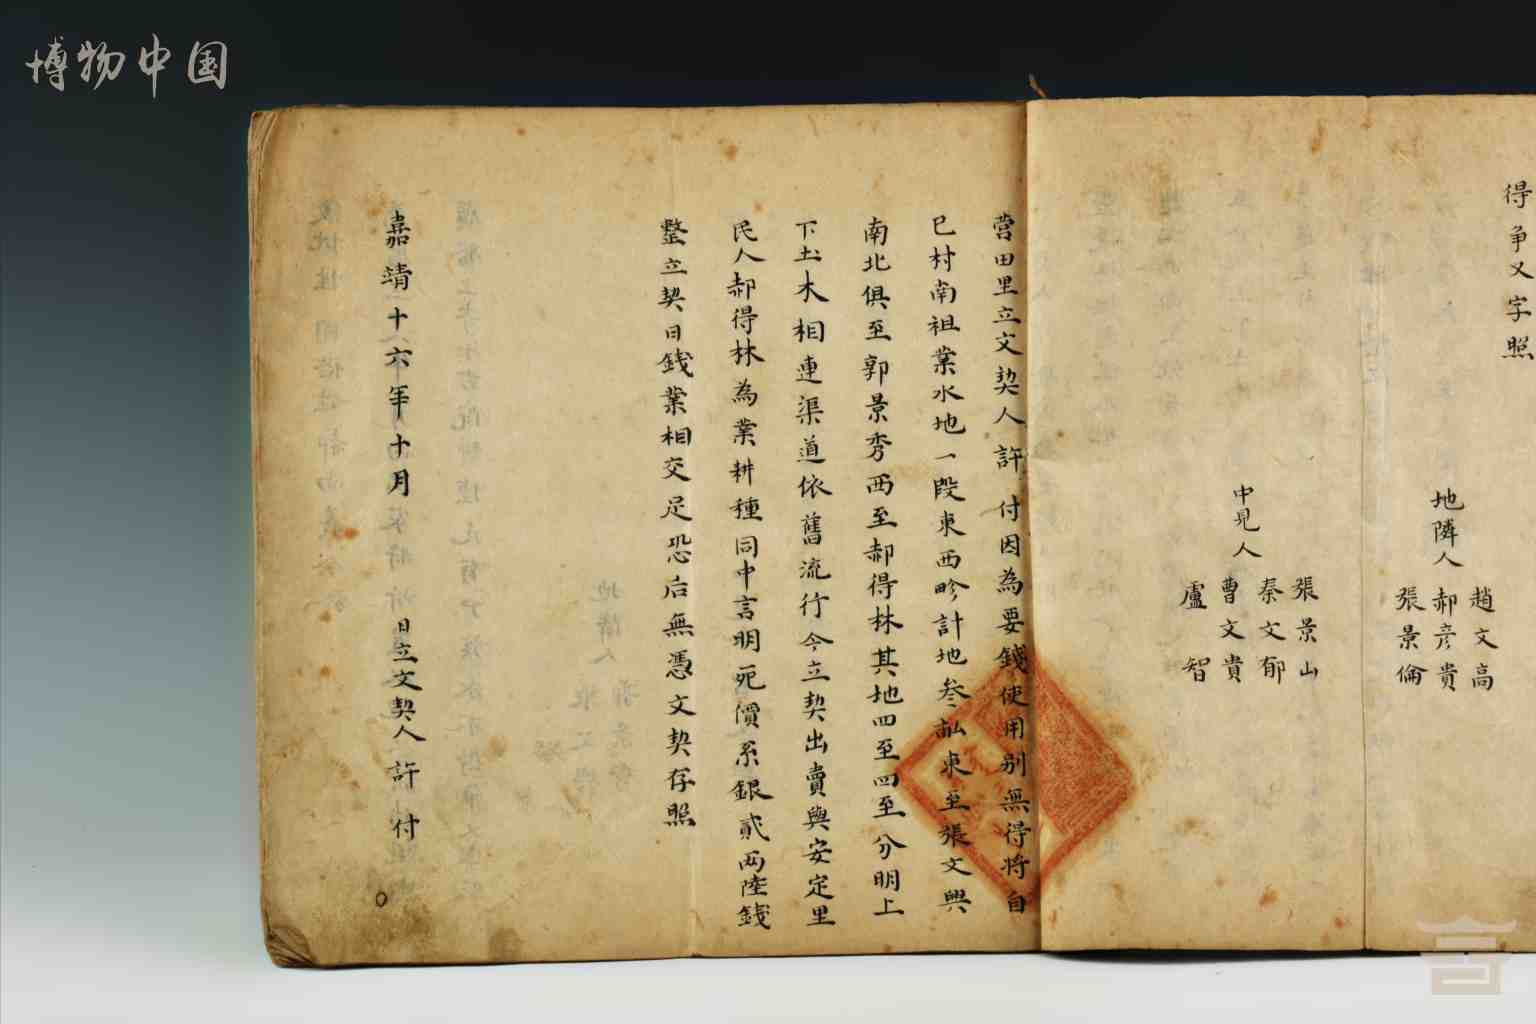 博物中国
得争义字照
地隣人
趙文高
郝彦貴
張景倫
中見人
張景山
秦文郁
曹文貴
盧智
营田里立文契人許付因為要錢使用别無得将自
已村南祖業水地一段東西畛計地叁畝東至張文興
南北俱至郭景秀西至郝得林其地四至四至分明上
下土木相連渠道依舊流行今立契出賣與安定里
民人郝得林為業耕種同中言明死價系銀貳両陸錢
整立契日錢業相交足恐后無憑文契存照
嘉靖二十六年十月 日立文契人許付